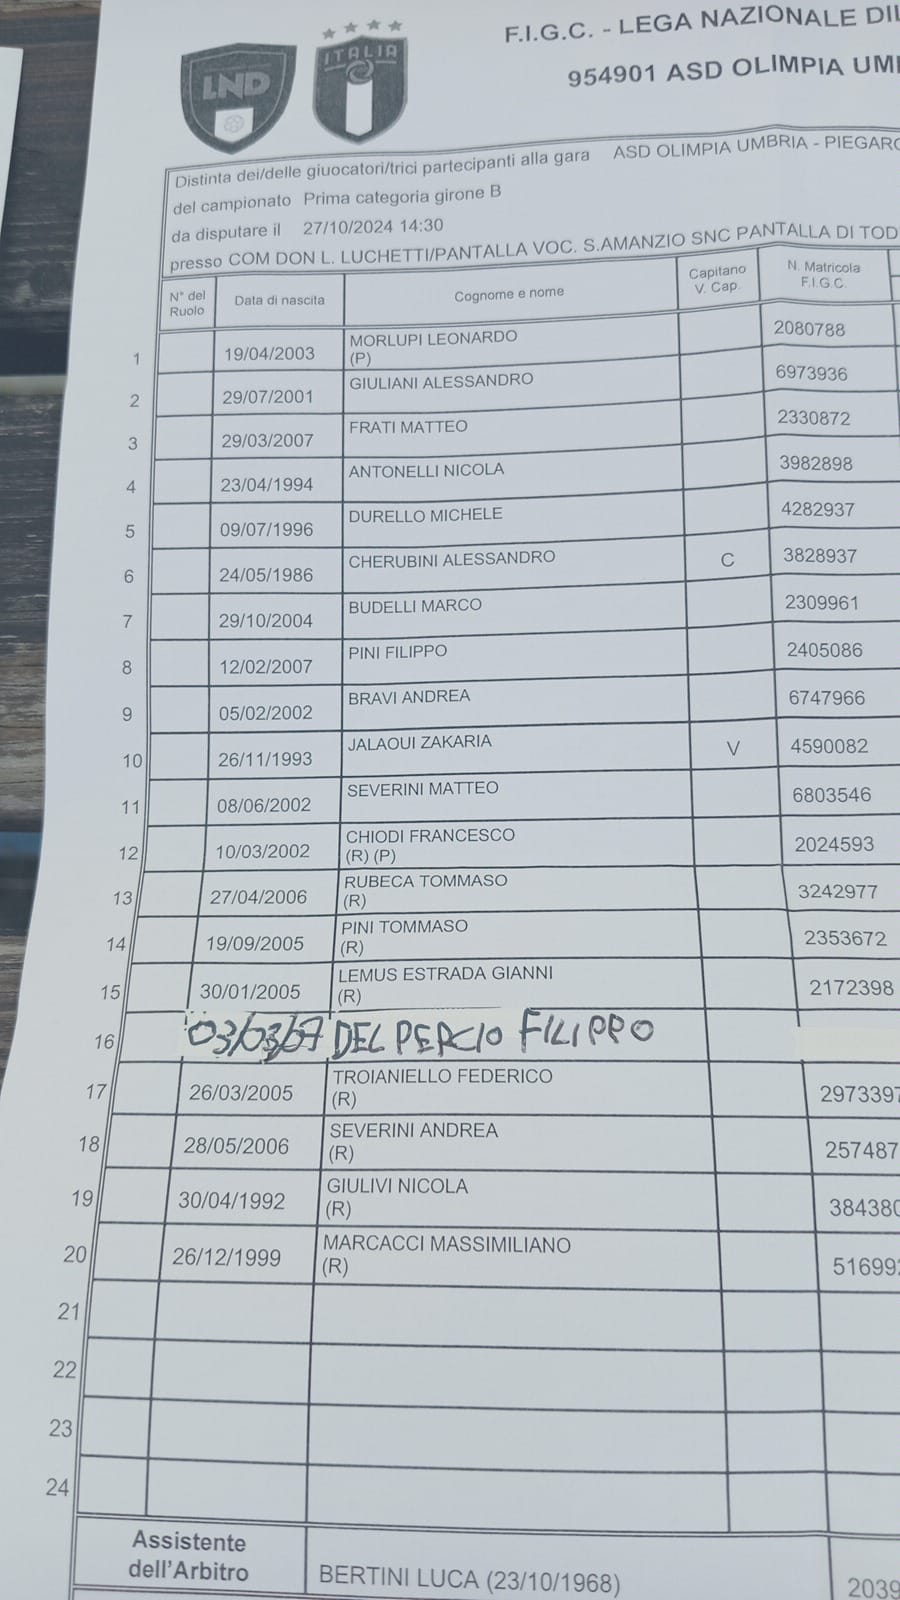 LND
ITALIA
F.I.G.C. - LEGA NAZIONALE DIL
954901 ASD OLIMPIA UMB
Distinta dei/delle giuocatori/trici partecipanti alla gara ASD OLIMPIA UMBRIA - PIEGARO
del campionato Prima categoria girone B
da disputare il 27/10/2024 14:30
presso COM DON L. LUCHETTI/PANTALLA VOC. S.AMANZIO SNC PANTALLA DI TOD
N° del Ruolo Data di nascita Cognome e nome Capitano V. Cap. N. Matricola F.I.G.C.
1 19/04/2003 MORLUPI LEONARDO (P) 2080788
2 29/07/2001 GIULIANI ALESSANDRO 6973936
3 29/03/2007 FRATI MATTEO 2330872
4 23/04/1994 ANTONELLI NICOLA 3982898
5 09/07/1996 DURELLO MICHELE 4282937
6 24/05/1986 CHERUBINI ALESSANDRO C 3828937
7 29/10/2004 BUDELLI MARCO 2309961
8 12/02/2007 PINI FILIPPO 2405086
9 05/02/2002 BRAVI ANDREA 6747966
10 26/11/1993 JALAOUI ZAKARIA V 4590082
11 08/06/2002 SEVERINI MATTEO 6803546
12 10/03/2002 CHIODI FRANCESCO (R) (P) 2024593
13 27/04/2006 RUBECA TOMMASO (R) 3242977
14 19/09/2005 PINI TOMMASO (R) 2353672
15 30/01/2005 LEMUS ESTRADA GIANNI (R) 2172398
16 03/03/07 DEL PERCIO FILIPPO
17 26/03/2005 TROIANIELLO FEDERICO (R) 2973397
18 28/05/2006 SEVERINI ANDREA (R) 257487
19 30/04/1992 GIULIVI NICOLA (R) 384380
20 26/12/1999 MARCACCI MASSIMILIANO (R) 516992
21
22
23
24
Assistente dell'Arbitro BERTINI LUCA (23/10/1968) 2039